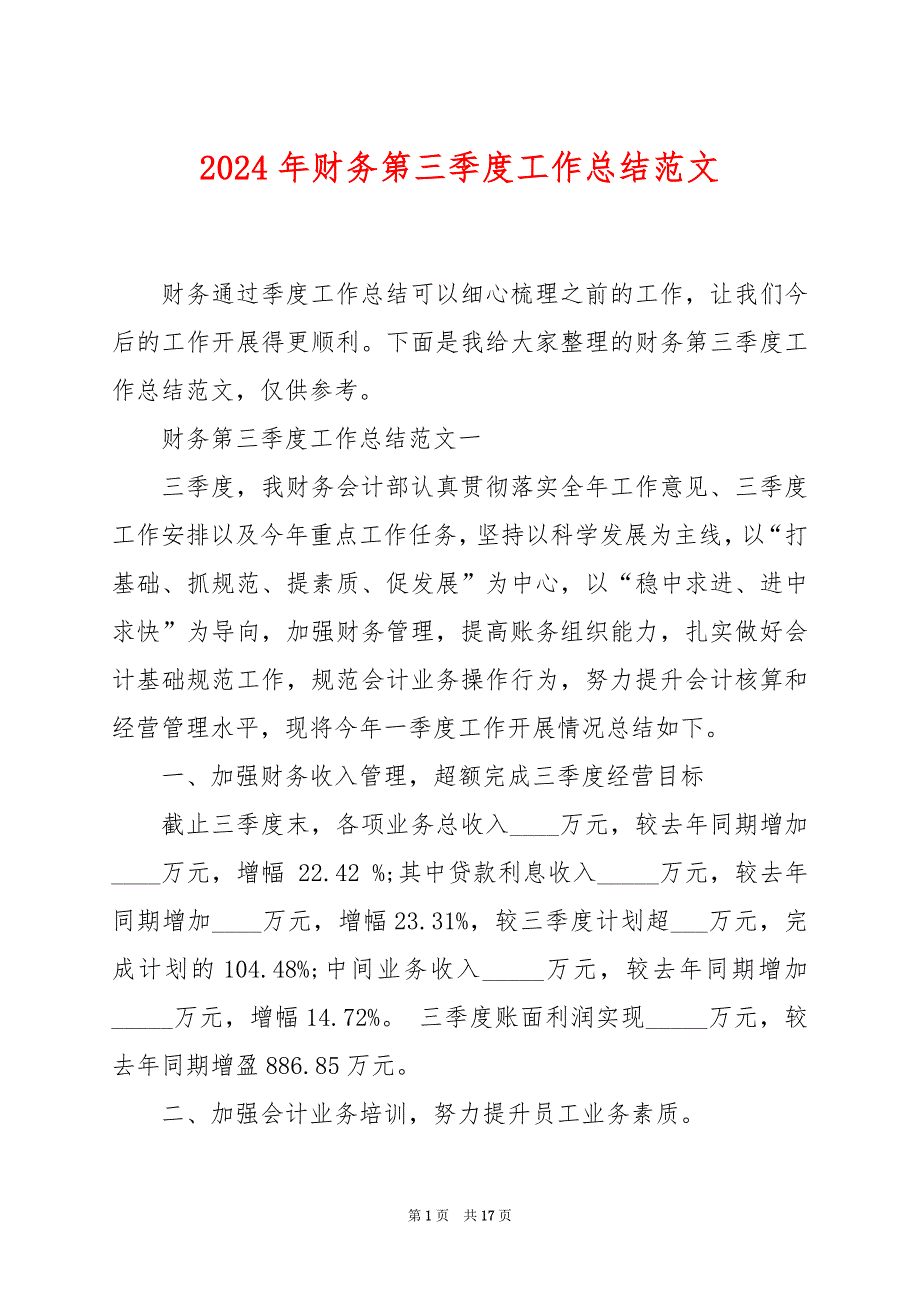 2024 年财务第三季度工作总结范文
财务通过季度工作总结可以细心梳理之前的工作，让我们今
后的工作开展得更顺利。下面是我给大家整理的财务第三季度工
作总结范文，仅供参考。
财务第三季度工作总结范文一
三季度，我财务会计部认真贯彻落实全年工作意见、三季度
工作安排以及今年重点工作任务，坚持以科学发展为主线，以“打
基础、抓规范、提素质、促发展”为中心，以“稳中求进、进中
求快”为导向，加强财务管理，提高账务组织能力，扎实做好会
计基础规范工作，规范会计业务操作行为，努力提升会计核算和
经营管理水平，现将今年一季度工作开展情况总结如下。
一、加强财务收入管理，超额完成三季度经营目标
截止三季度末，各项业务总收入____万元，较去年同期增加
____万元，增幅 22.42 %;其中贷款利息收入_____万元，较去年
同期增加____万元，增幅 23.31%，较三季度计划超___万元，完
成计划的 104.48%;中间业务收入_____万元，较去年同期增加
_____万元，增幅 14.72%。 三季度账面利润实现_____万元，较
去年同期增盈 886.85 万元。
二、加强会计业务培训，努力提升员工业务素质。
第 1 页 共 17 页